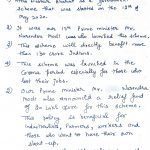 scheme that was started on the 12th of
May 2020.
2) It was our 15th Prime minister Mr.
Narendra Modi who launched this scheme.
3) This scheme will directly benefit more
than 130 crore Indians.
4) This scheme was launched in the
Corona period especially for those who
lost their jobs.
5) Our Prime minister Mr. Narendra
Modi also announced a relief fund
of 20 lakh crore for this scheme.
6) This policy is beneficial for
individuals, farmers, workers and
those who want to have their own
start-up.